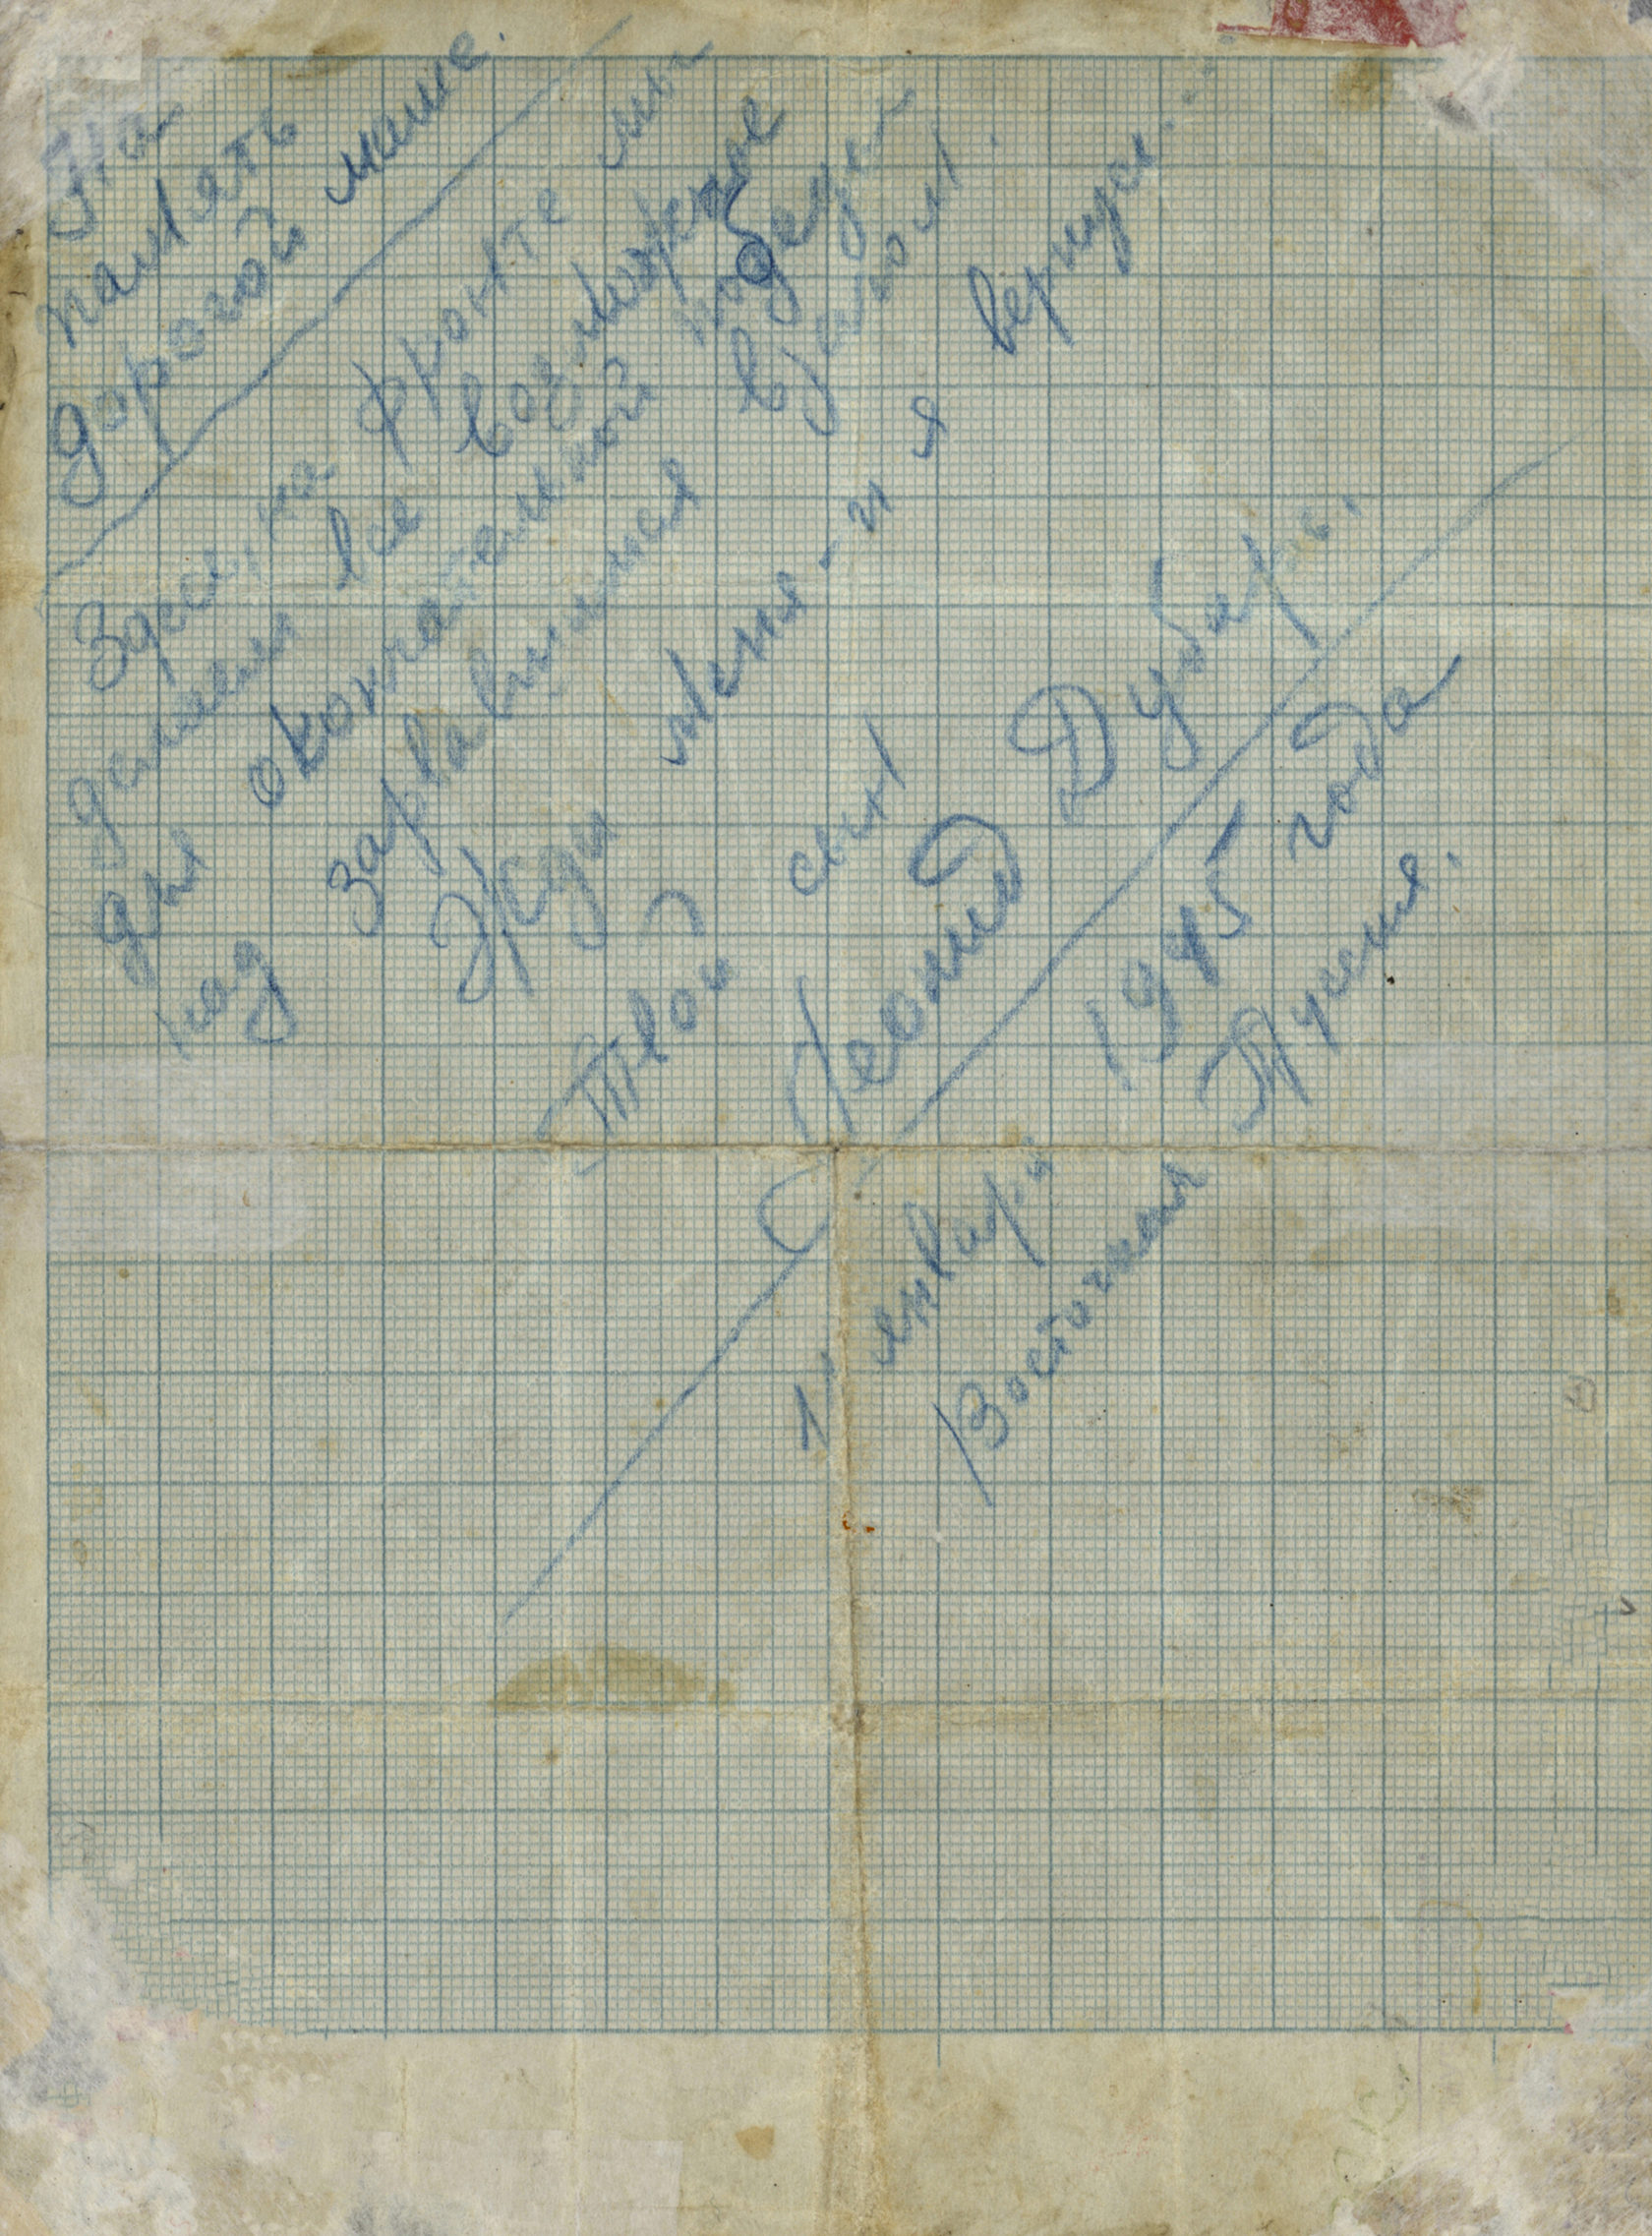 На
память
дорогой маме.
Здесь, на фронте мы
делаем все возможное
для окончательной победы
над зарвавшимся врагом.
Жди меня - и я вернусь.
Твой сын
Леонид Дубарь.
1 января 1945 года
Восточная Пруссия.